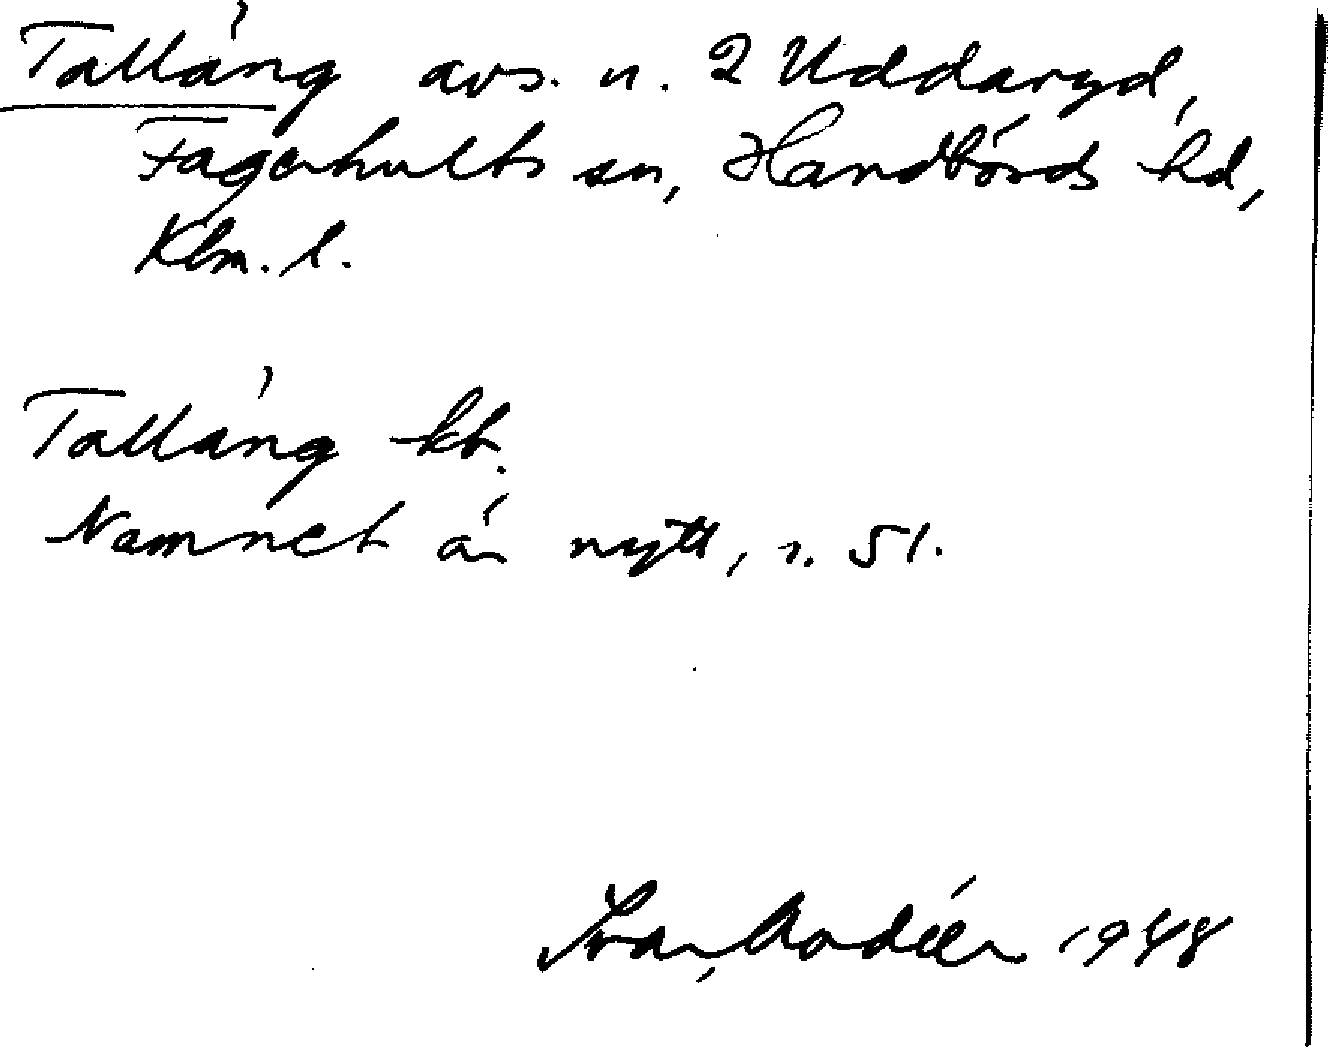 Talläng avs. u. 2 Uddaryd,
Fagerhults sn, Handbörds hd,
Klm. l.
Talläng kt.
Namnet är nytt, s. 51.
Ivar Modéer 1948